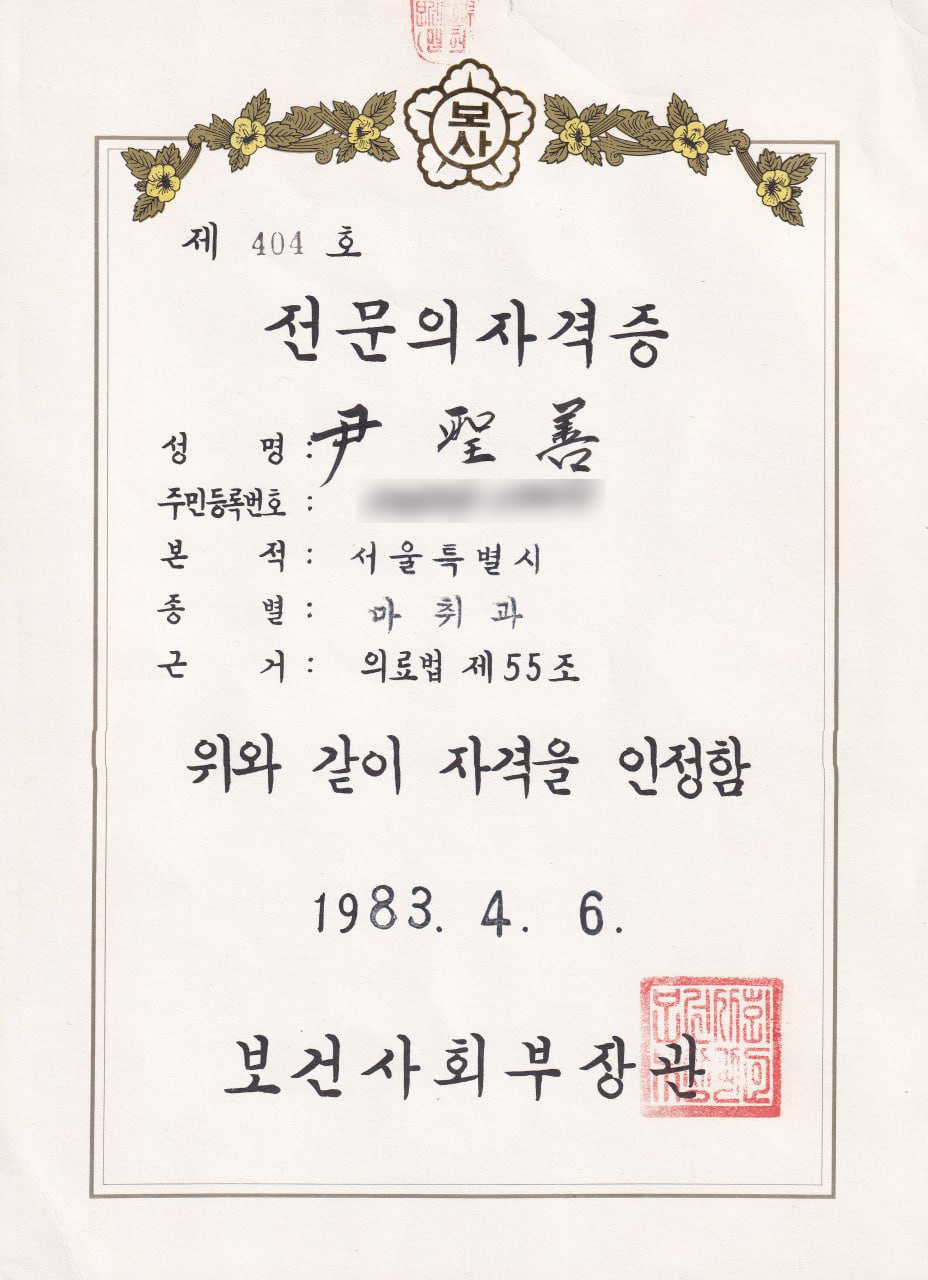 보사
제 404 호
전문의자격증
성 명 : 尹 聖 善
주민등록번호 :
본 적 : 서울특별시
종 별 : 마취과
근 거 : 의료법 제55조
위와 같이 자격을 인정함
1983. 4. 6.
보건사회부장관